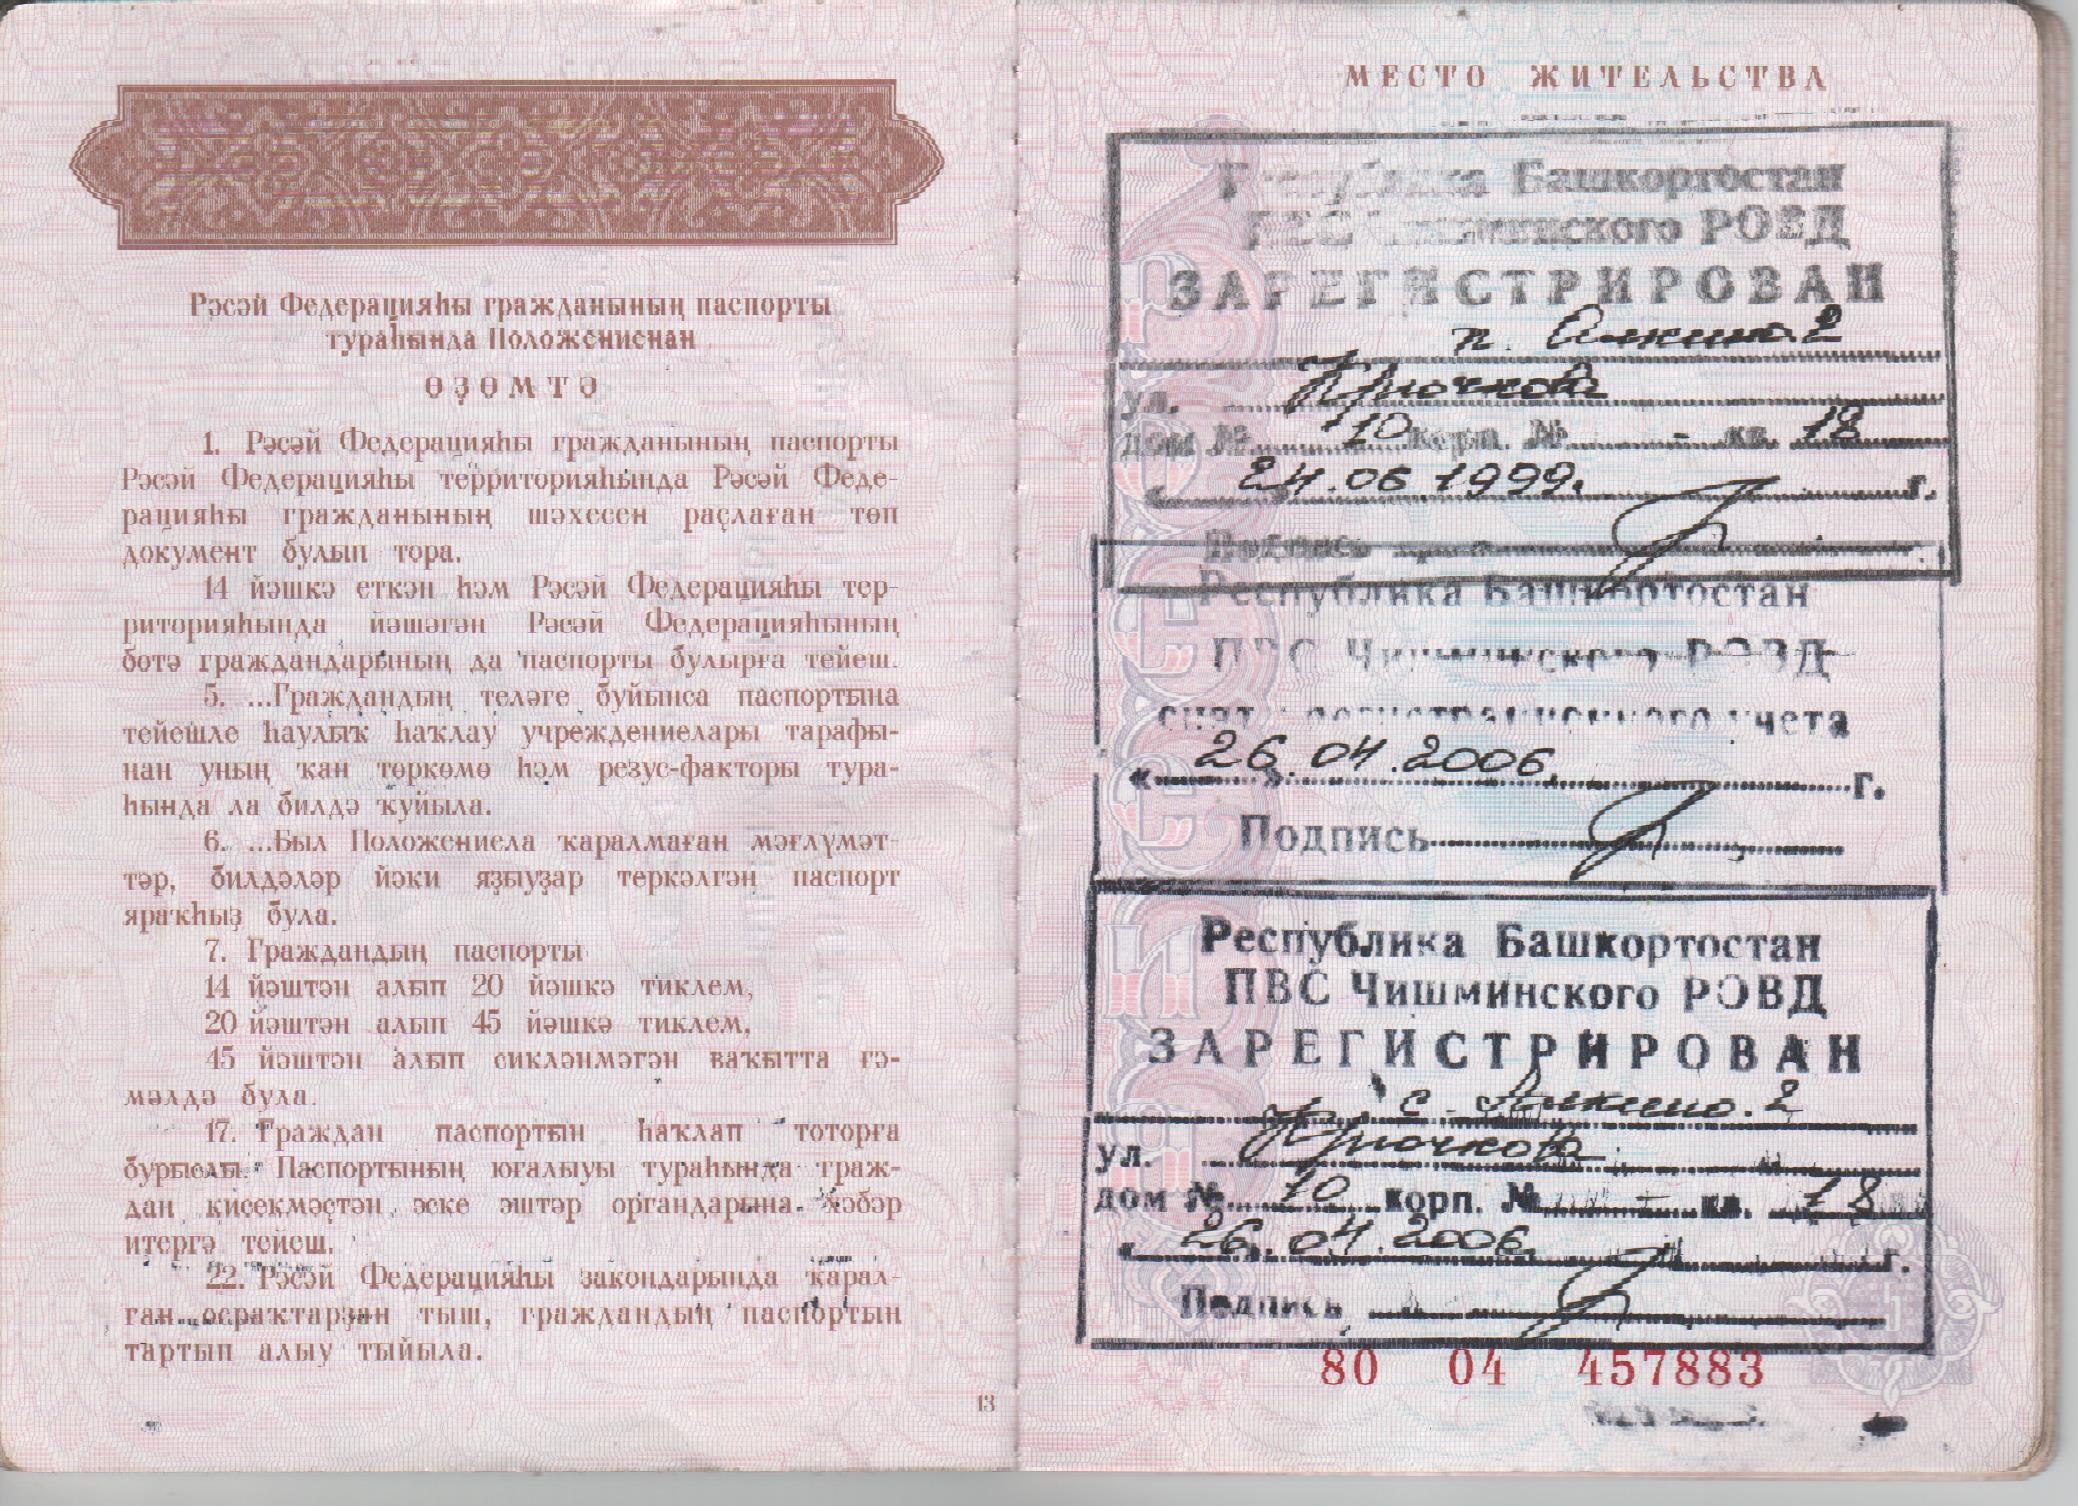 Рәсәй Федерацияһы гражданының паспорты
тураһында Положениенан
ӨҘӨМТӘ
1. Рәсәй Федерацияһы гражданының паспорты
Рәсәй Федерацияһы территорияһында Рәсәй Феде-
рацияһы гражданының шәхесен раҫлаған төп
документ булып тора.
14 йәшкә еткән һәм Рәсәй Федерацияһы тер-
риторияһында йәшәгән Рәсәй Федерацияһының
бөтә граждандарының да паспорты булырға тейеш.
5. ...Граждандың теләге буйынса паспортына
тейешле һаулыҡ һаҡлау учреждениелары тарафы-
нан уның ҡан төркөмө һәм резус-факторы тура-
һында ла билдә ҡуйыла.
6. ...Был Положениела ҡаралмаған мәғлүмәт-
тәр, билдәләр йәки яҙыуҙар теркәлгән паспорт
яраҡһыҙ була.
7. Граждандың паспорты
14 йәштән алып 20 йәшкә тиклем,
20 йәштән алып 45 йәшкә тиклем,
45 йәштән алып сикләнмәгән ваҡытта ғә-
мәлдә була.
17. Граждан паспортын һаҡлап тоторға
бурыслы. Паспортының юғалыуы тураһында граж-
дан кисекмәҫтән эске эштәр органдарына хәбәр
итергә тейеш.
22. Рәсәй Федерацияһы закондарында ҡарал-
ған осраҡтарҙан тыш, граждандың паспортын
тартып алыу тыйыла.
13
МЕСТО ЖИТЕЛЬСТВА
Республика Башкортостан
ПВС Чишминского РОВД
ЗАРЕГИСТРИРОВАН
п. Алкино-2
ул. Крючкова
дом № 10 корп. № - кв. 18
24.06.1999. г.
Подпись
Республика Башкортостан
ПВС Чишминского РОВД
снят с регистрационного учета
« 26.04.2006. » г.
Подпись
Республика Башкортостан
ПВС Чишминского РОВД
ЗАРЕГИСТРИРОВАН
с. Алкино-2
ул. Крючкова
дом № 10 корп. № - кв. 18
26.04.2006. г.
Подпись
80 04 457883